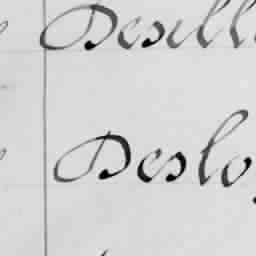 Desill
Deslo